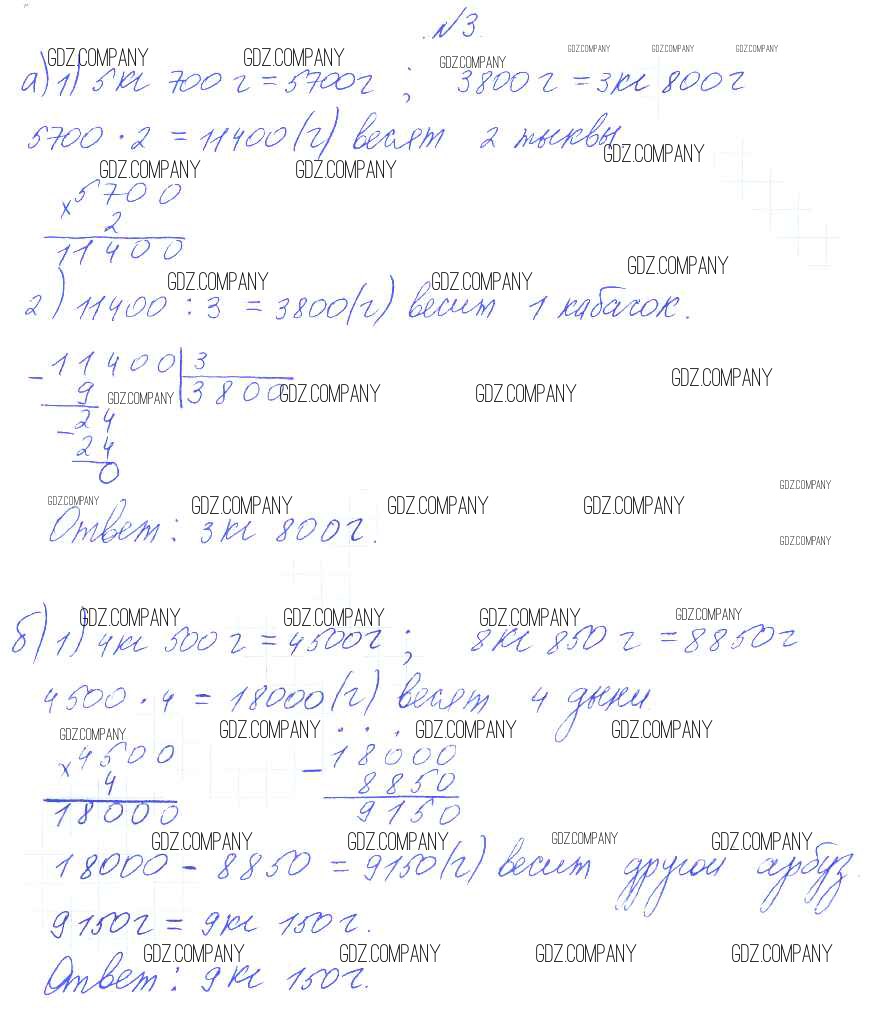 №3.
GDZ.COMPANY GDZ.COMPANY GDZ.COMPANY GDZ.COMPANY GDZ.COMPANY GDZ.COMPANY
а) 1) 5 кг 700 г = 5700 г ; 3800 г = 3 кг 800 г
5700 · 2 = 11400 (г) весят 2 тыквы
GDZ.COMPANY GDZ.COMPANY GDZ.COMPANY
× 5700
2
11400
GDZ.COMPANY GDZ.COMPANY GDZ.COMPANY
2) 11400 : 3 = 3800 (г) весит 1 кабачок.
− 11400 | 3
9 GDZ.COMPANY 3800 GDZ.COMPANY GDZ.COMPANY GDZ.COMPANY
− 24
24
0
GDZ.COMPANY GDZ.COMPANY GDZ.COMPANY GDZ.COMPANY GDZ.COMPANY
Ответ: 3 кг 800 г.
GDZ.COMPANY
GDZ.COMPANY GDZ.COMPANY GDZ.COMPANY GDZ.COMPANY
б) 1) 4 кг 500 г = 4500 г ; 8 кг 850 г = 8850 г
4500 · 4 = 18000 (г) весят 4 дыни
GDZ.COMPANY GDZ.COMPANY GDZ.COMPANY GDZ.COMPANY
× 4500 − 18000
4 8850
18000 9150
GDZ.COMPANY GDZ.COMPANY GDZ.COMPANY GDZ.COMPANY
18000 − 8850 = 9150 (г) весит другой арбуз.
9150 г = 9 кг 150 г.
GDZ.COMPANY GDZ.COMPANY GDZ.COMPANY GDZ.COMPANY
Ответ: 9 кг 150 г.